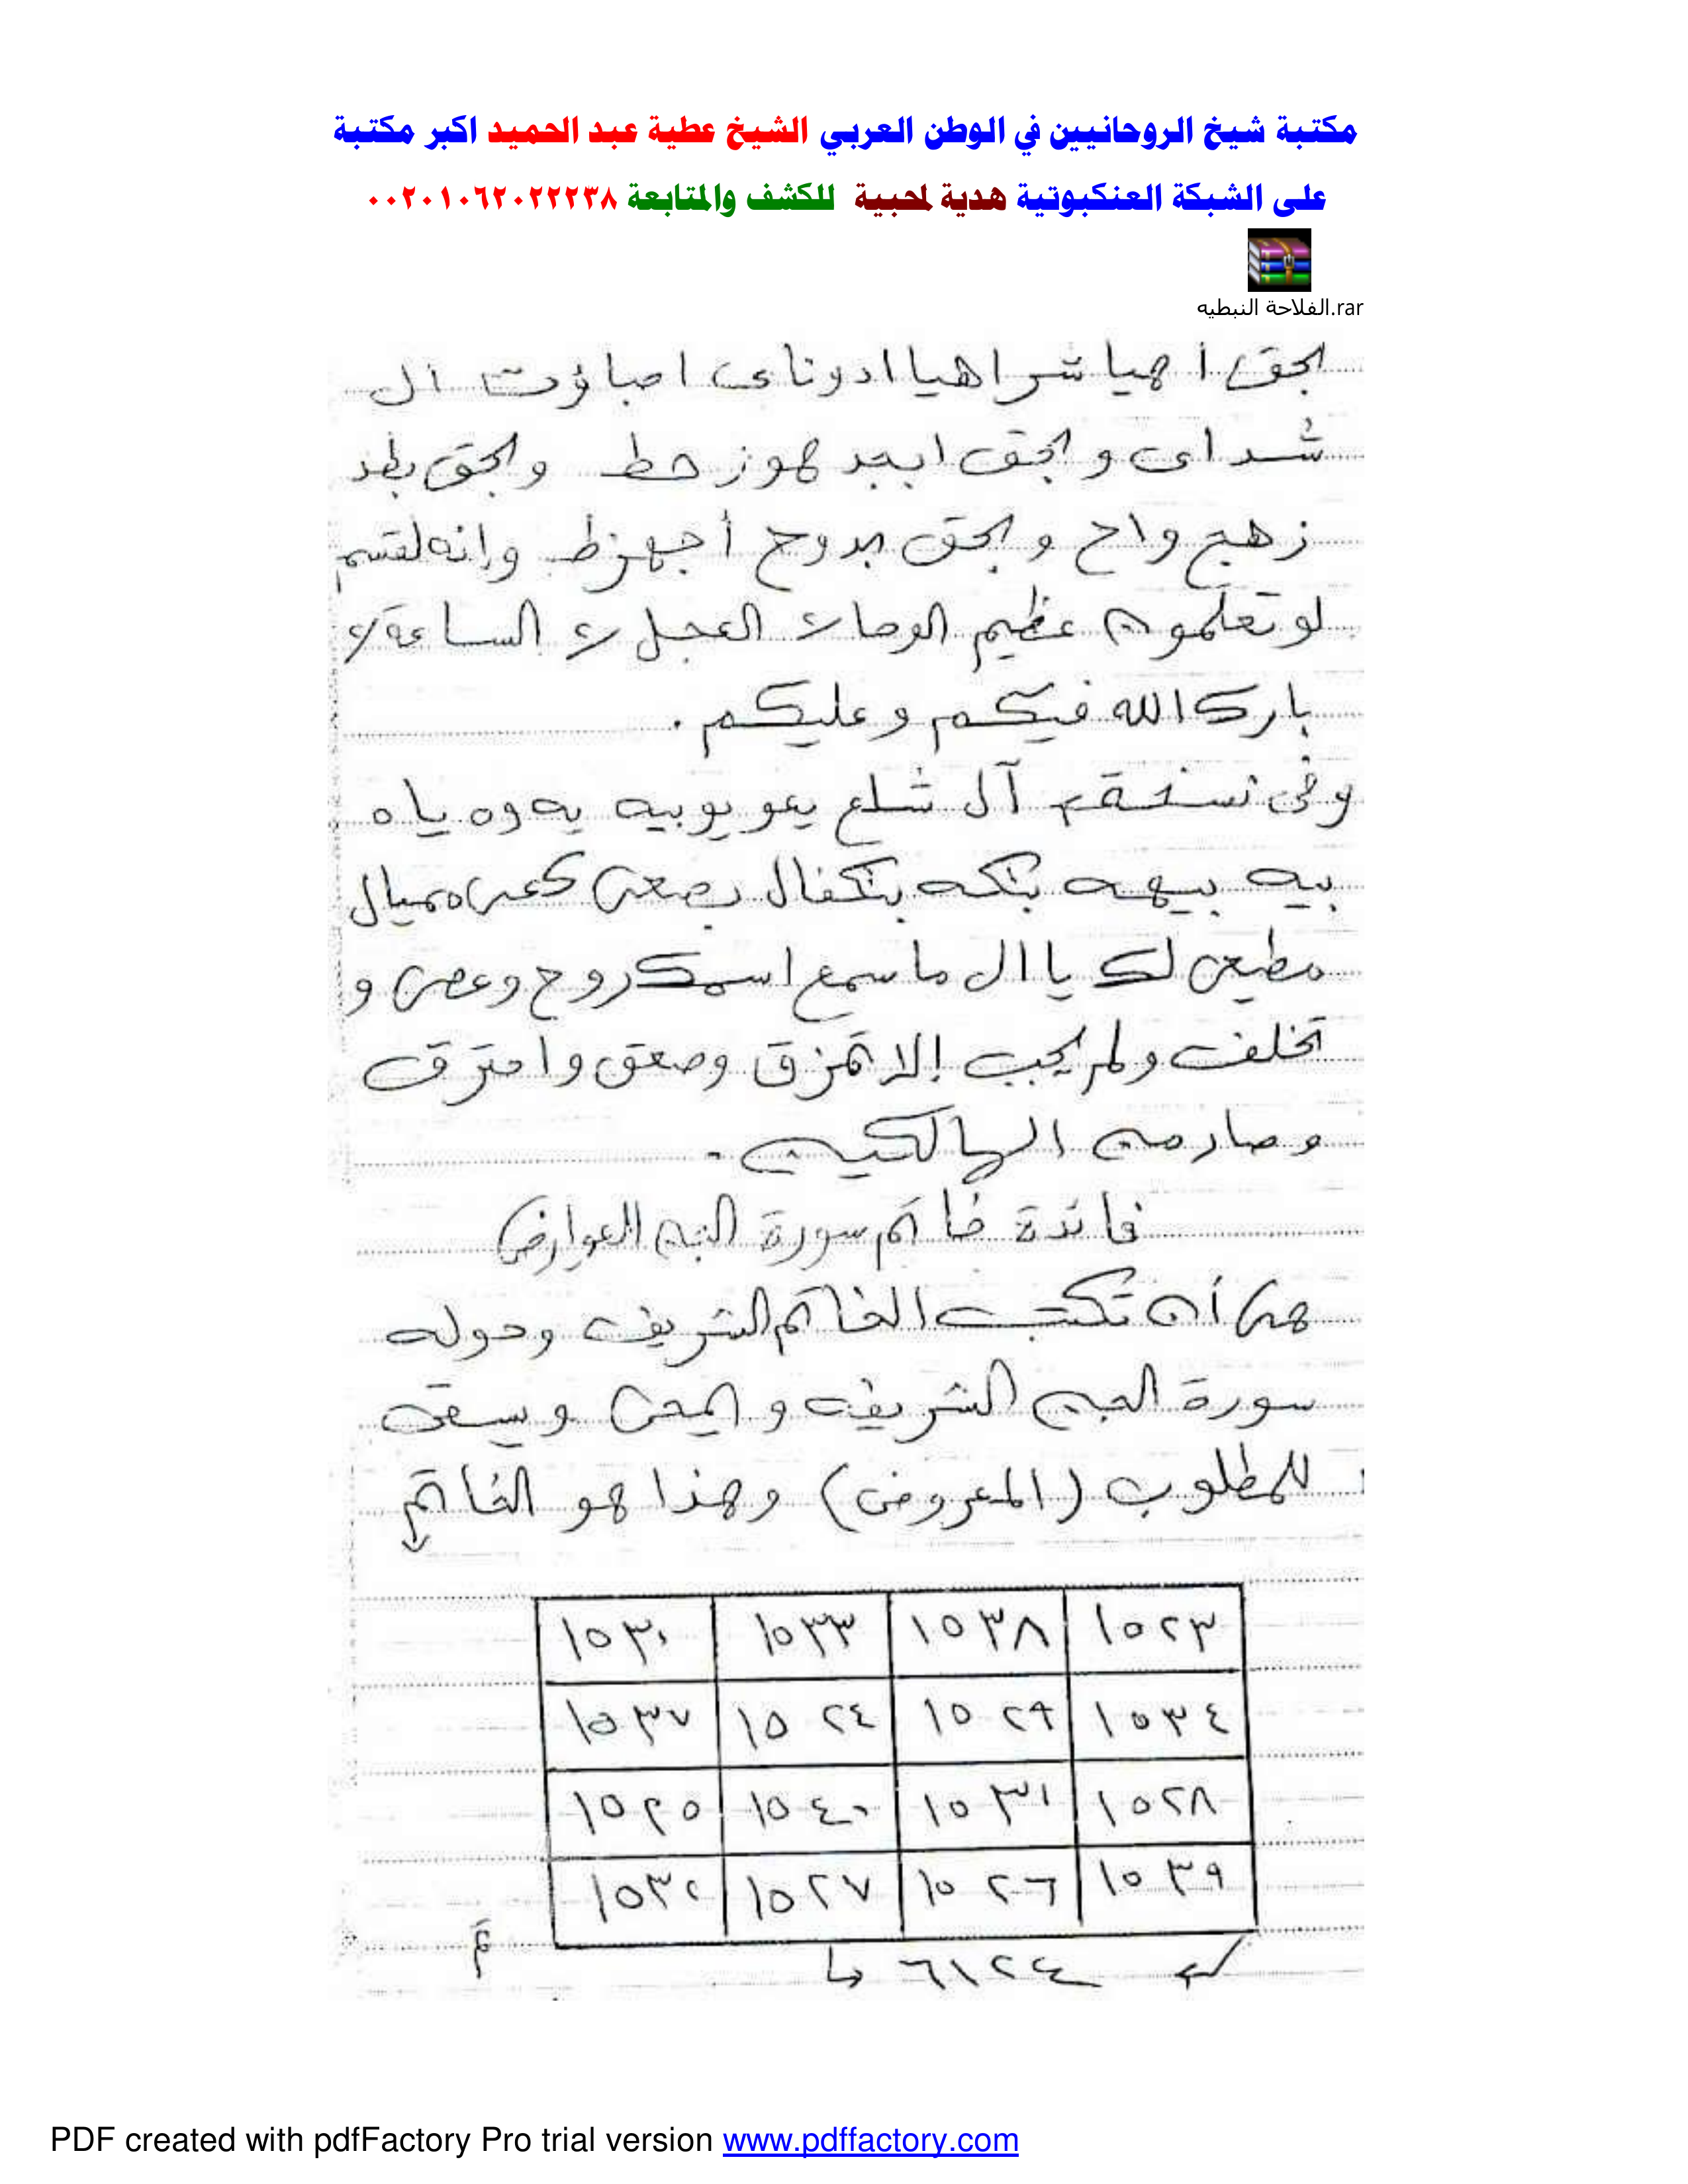 مكتبة شيخ الروحانيين في الوطن العربي الشيخ عطية عبد الحميد اكبر مكتبة
على الشبكة العنكبوتية هدية لمحبية للكشف والمتابعة ٠٠٢٠١٠٦٢٠٢٢٢٣٨
الفلاحة النبطيه.rar
بحق أهيا شراهيا ادوناى اصباؤت ال
شداى وبحق ابجد هوز حط وبحق بطد
زهج واح وبحق بدوح أجهزط وإنه لقسم
لو تعلمون عظيم الوحا٢ العجل٢ الساعة٢
بارك الله فيكم وعليكم.
وفى نسخة آل شلع يعو يوبيه يه وه ياه
بيه بيهه بتكه بتكفال بصعى كعى مميال
مطيعى لك يا ال ما سمع اسمك روح وعصى و
تخلف ولم يجب إلا تمزق وصعق واحترق
وصار من الهالكين.
فائدة خاتم سورة الجن للعوارض
هى أن تكتب الخاتم الشريف وحوله
سورة الجن الشريفه و تمحى ويسقى
للمطلوب (المعروض) وهذا هو الخاتم
١٥٢٣ ١٥٣٨ ١٥٣٣ ١٥٣٠
١٥٣٤ ١٥٢٩ ١٥٢٤ ١٥٣٧
١٥٢٨ ١٥٣١ ١٥٤٠ ١٥٢٥
١٥٣٩ ١٥٢٦ ١٥٢٧ ١٥٣٢
٦١٢٤
PDF created with pdfFactory Pro trial version www.pdffactory.com